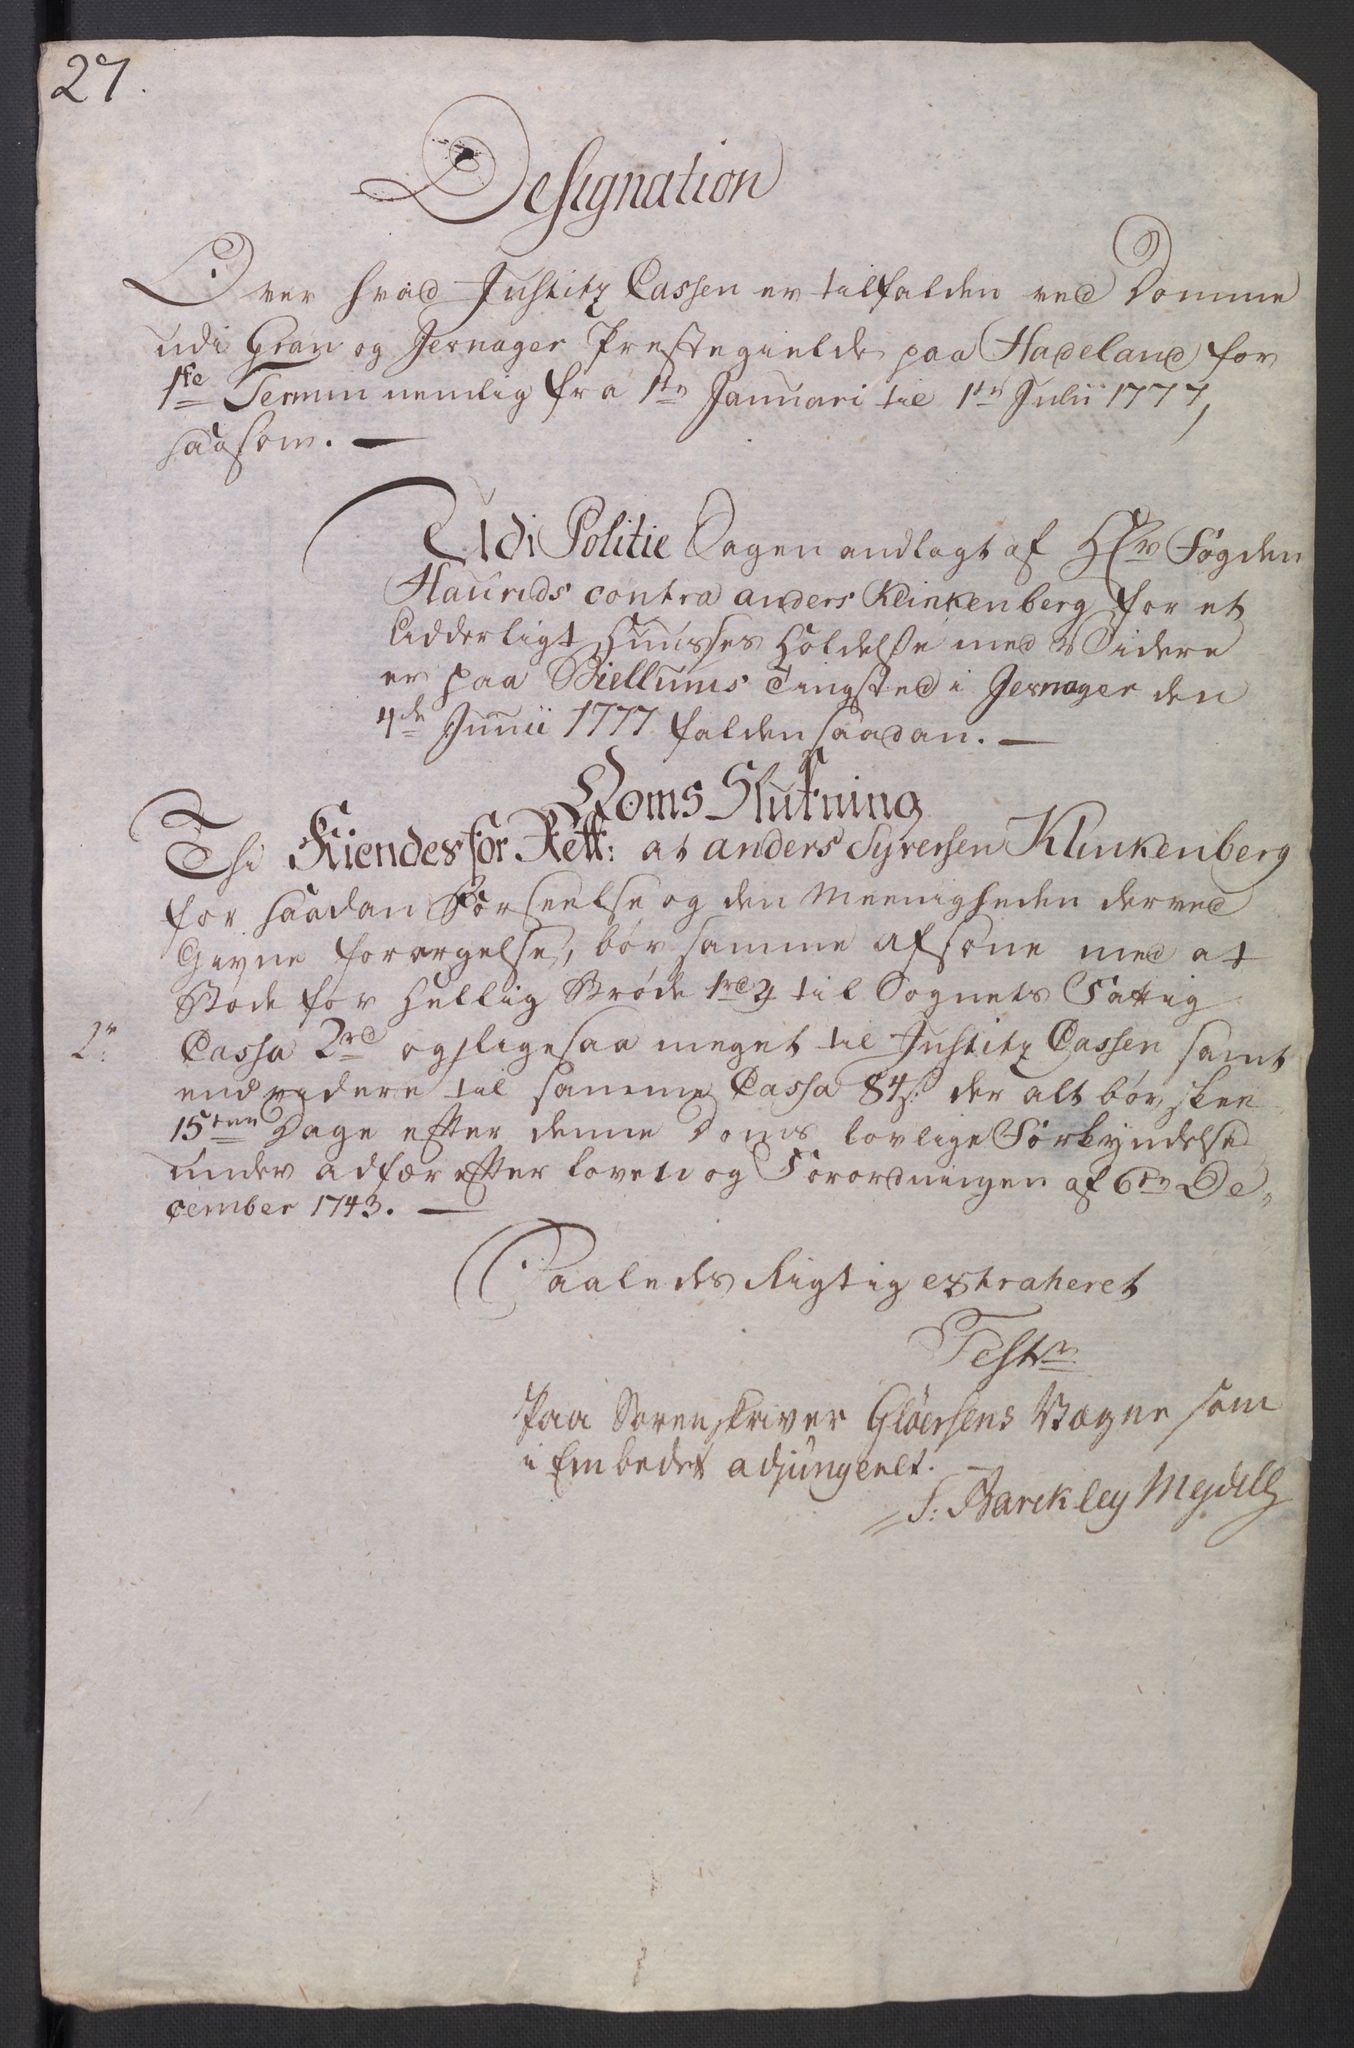 27.
Designation
Over hvad Justitz Cassen er tilfalden ved Domme
udi Gran og Jernager Prestegield paa Hadeland for
1ste Termin nemlig fra 1ten Januari til 1ten Julii 1777,
saasom. —
Udi Politie Sagen andlagt af Hr Fogden
Hauritds contra anders Klinkenberg for et
Lidderligt Huusses Holdelse med Videre
er paa Biellums Tingsted i Jernager den
4de Junii 1777 falden saadan. —
Doms Slutning
Thi Kiendes for Rett: at anders Syversen Klinkenberg
for saadan Forseelse og den Meenigheden derved
Givne forargelse, bør samme afsone med at
Bøde for Hellig Brøde 1rd til Sognets Fattig
2r: Cassa 2rd og ligesaa meget til Justitz Cassen samt
end videre til samme Cassa 84s: der alt bør skee
15ten Dage efter denne Doms lovlige Forkyndelse
under adfær efter loven og Forordningen af 6ten De-
cember 1743. —
Saaledes Rigtig extraheret
Test
Paa Sorenskriver Gløersens Vegne som
i Embedet adjungeret. —
S: Barckley Mejdell